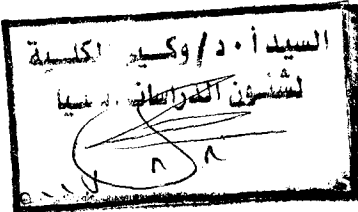 السيد أ٠د/وكيل الكلية
لشئون الدراسات العليا